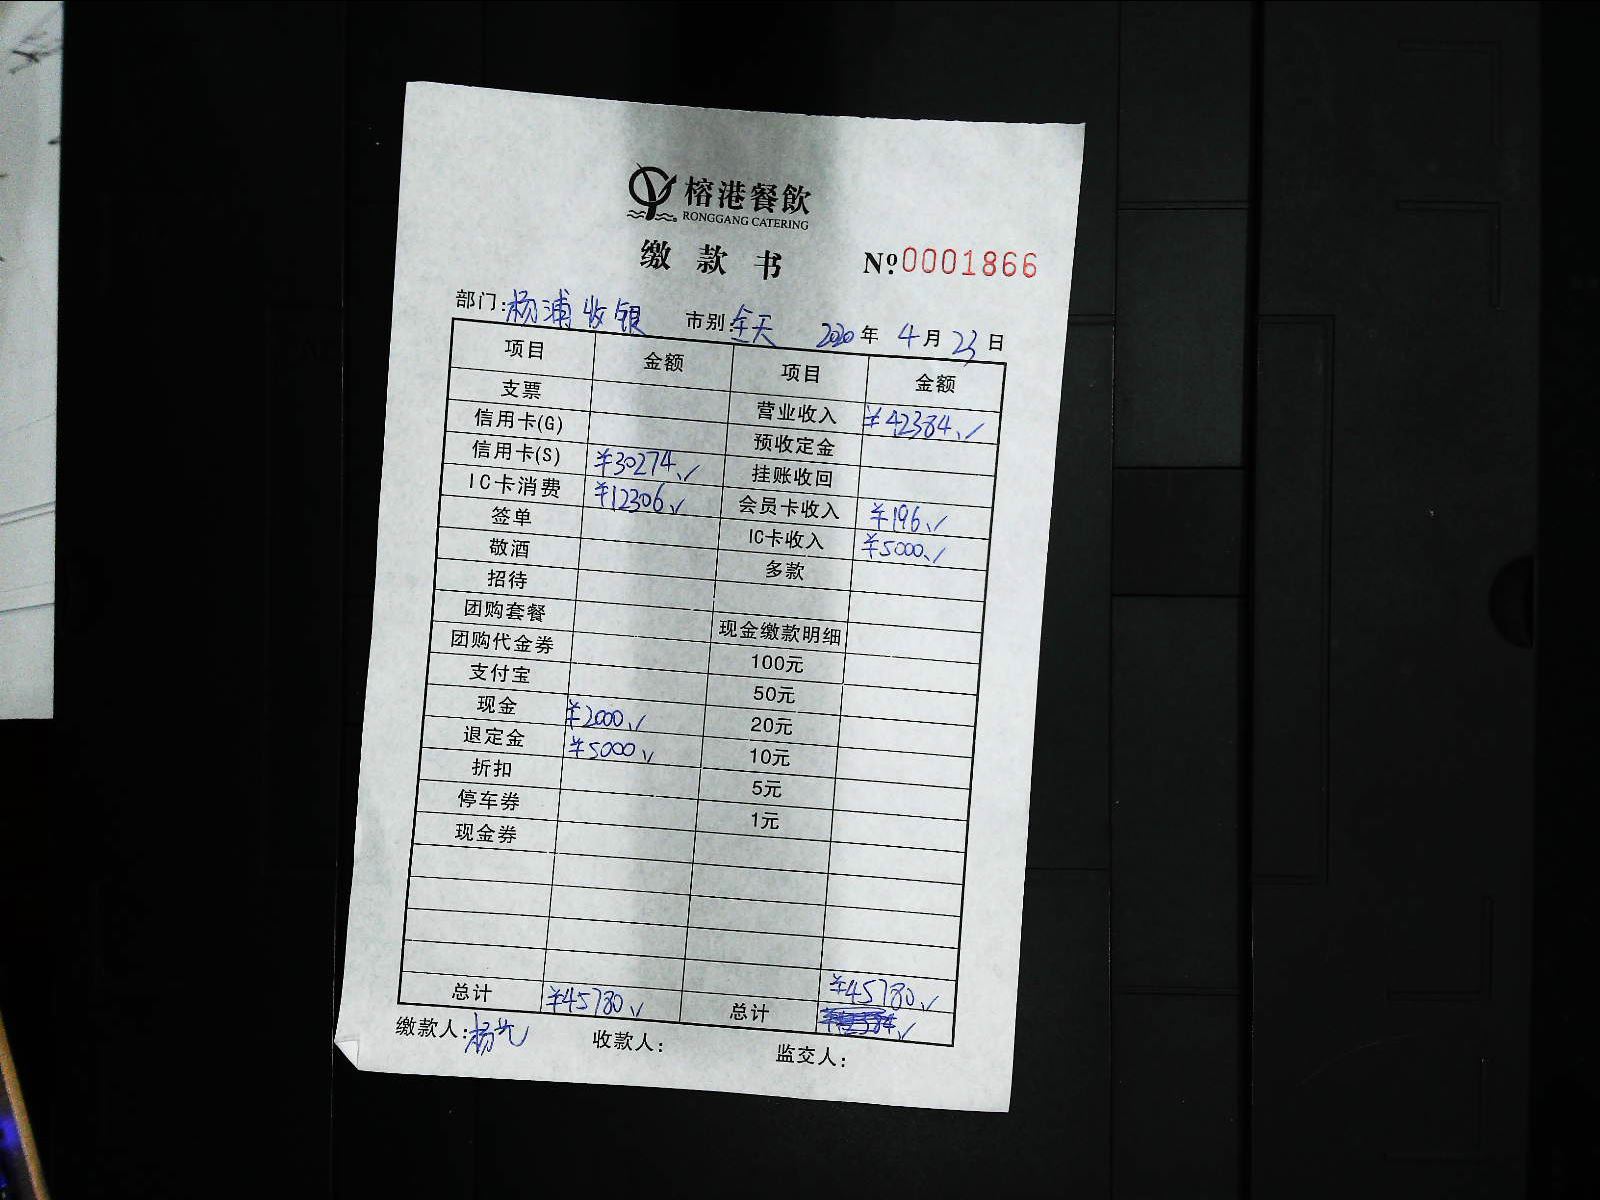 榕港餐飲
RONGGANG CATERING
缴款书 Nº:0001866
部门:杨浦收银 市别:全天 2020年4月23日
项目 金额 项目 金额
支票 营业收入 ¥42384.✓
信用卡(G) 预收定金
信用卡(S) ¥30274.✓ 挂账收回
IC卡消费 ¥12306.✓ 会员卡收入 ¥196.✓
签单 IC卡收入 ¥5000.✓
敬酒 多款
招待
团购套餐 现金缴款明细
团购代金券 100元
支付宝 50元
现金 ¥2000.✓ 20元
退定金 ¥5000.✓ 10元
折扣 5元
停车券 1元
现金券
¥45780.✓
总计 ¥45780.✓ 总计
缴款人:杨 收款人: 监交人: